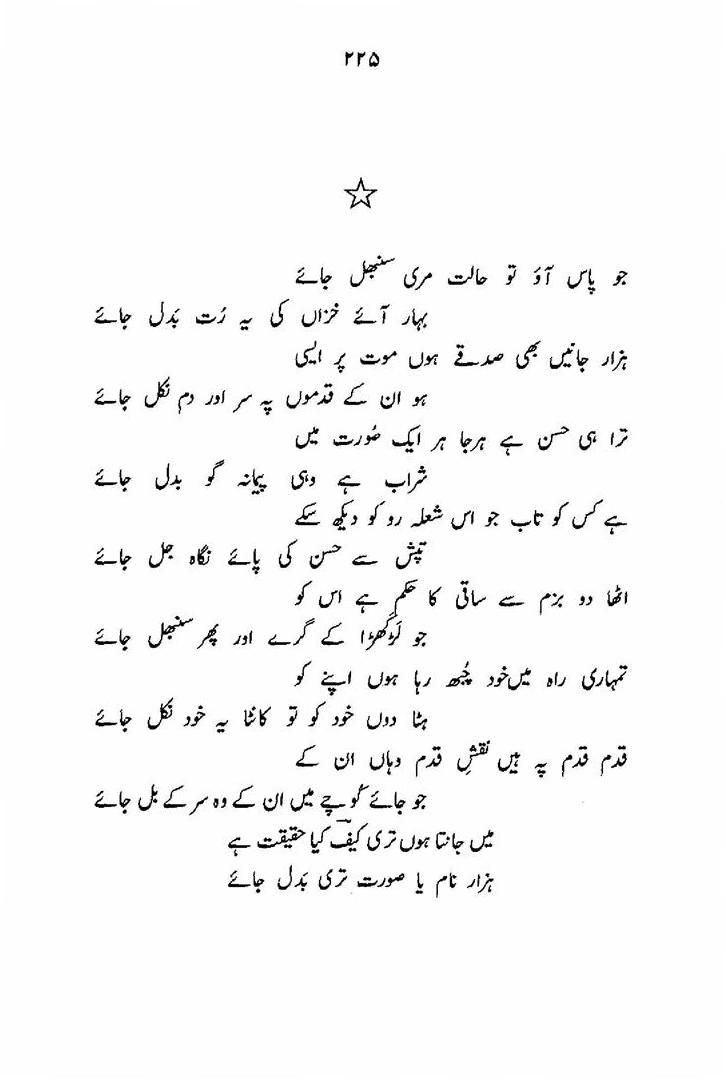 ۲۲۵
جو پاس آؤ تو حالت مری سنبھل جائے
بہار آئے خزاں کی یہ رُت بَدل جائے
ہزار جانیں بھی صدقے ہوں موت پر ایسی
ہو ان کے قدموں پہ سر اور دم نکل جائے
ترا ہی حسن ہے ہرجا ہر ایک صُورت میں
شراب ہے وہی پیمانہ گو بدل جائے
ہے کس کو تاب جو اس شعلہ رو کو دیکھ سکے
تپش سے حسن کی پائے نگاہ جل جائے
اٹھا دو بزم سے ساقی کا حکم ہے اس کو
جو لَڑکھڑا کے گرے اور پھر سنبھل جائے
تمہاری راہ میں خود چُبھ رہا ہوں اپنے کو
ہٹا دوں خود کو تو کانٹا یہ خود نکل جائے
قدم قدم پہ ہیں نقشِ قدم وہاں ان کے
جو جائے کُوچے میں ان کے وہ سر کے بل جائے
میں جانتا ہوں تری کیفؔ کیا حقیقت ہے
ہزار نام یا صورت تری بَدل جائے